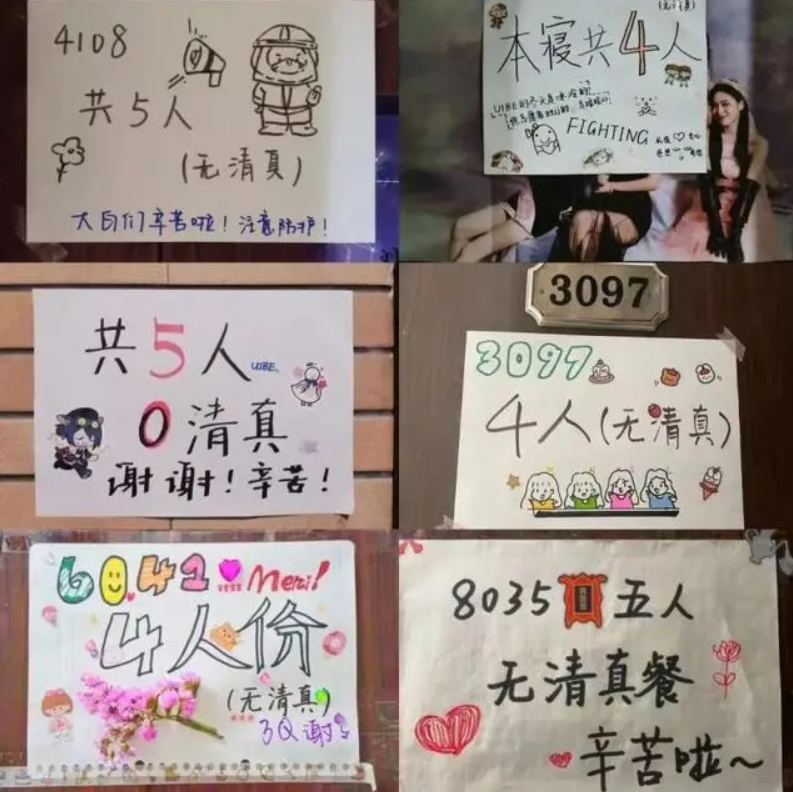 4108
共5人
(无清真)
大白们辛苦啦！注意防护！
本寝共4人
UIBE的冬天是冰冷的
FIGHTING
共5人
UIBE
0清真
谢谢！辛苦！
3097
3097
4人(无清真)
6041 Merci!
4人份
(无清真)
3Q 谢
8035 五人
无清真餐
辛苦啦~